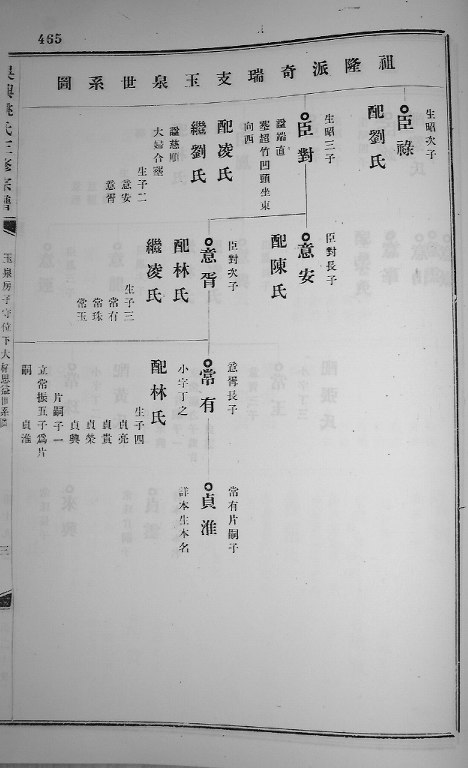 465
祖隆派奇瑞支玉泉世系圖
生昭次子
臣祿
配劉氏
生昭三子
臣對
諡端直
塟趨竹凹頭坐東
向西
配凌氏
繼劉氏
諡慈順
夫婦合塟
生子二
意安
意胥
臣對長子
意安
配陳氏
臣對次子
意胥
配林氏
繼凌氏
生子三
常有
常珠
常玉
意胥長子
常有
小字丁之
配林氏
生子四
貞亮
貞貴
貞榮
貞興
片嗣子一
立常振五子爲片
貞淮
嗣
常有片嗣子
貞淮
詳本生本名
吳興姚氏三修宗譜
玉泉房子守位下大
世系圖
三